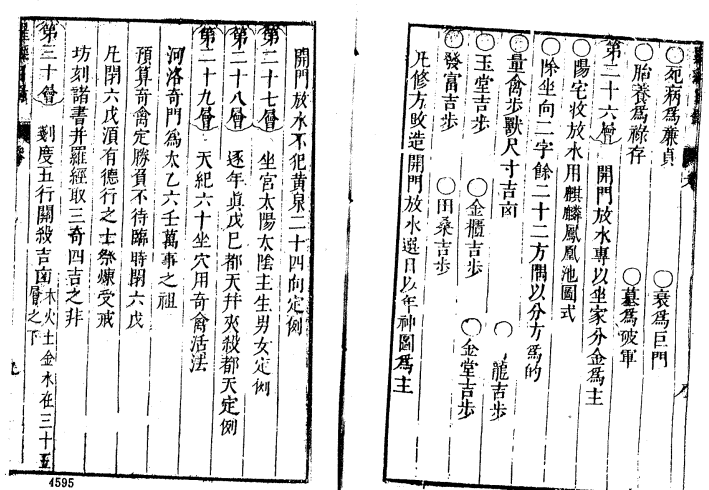 ○死病為廉貞 ○衰為巨門
○胎養為祿存 ○墓為破軍
第二十六層 開門放水專以坐家分金為主
○陽宅收放水用麒麟鳳凰池圖式
○除坐向二字餘二十二方間以分方為的
○量禽步獸尺寸吉凶 ○龍吉步
○玉堂吉步 ○金櫃吉步 ○金堂吉步
○發富吉步 ○田桑吉步
凡修方改造開門放水選日以年神圖為主
開門放水不犯黃泉二十四向定例
第二十七層 坐宮太陽太陰主生男女定例
第二十八層 逐年真戊巳都天幷夾殺都天定例
第二十九層 天紀六十坐穴用奇禽活法
河洛奇門為太乙六壬萬事之祖
預算奇禽定勝負不待臨時閉六戊
凡閉六戊須有德行之士祭煉受戒
坊刻諸書幷羅經取三奇四吉之非
第三十層 剩度五行關殺吉凶木火土金水在三十五層之下
4595